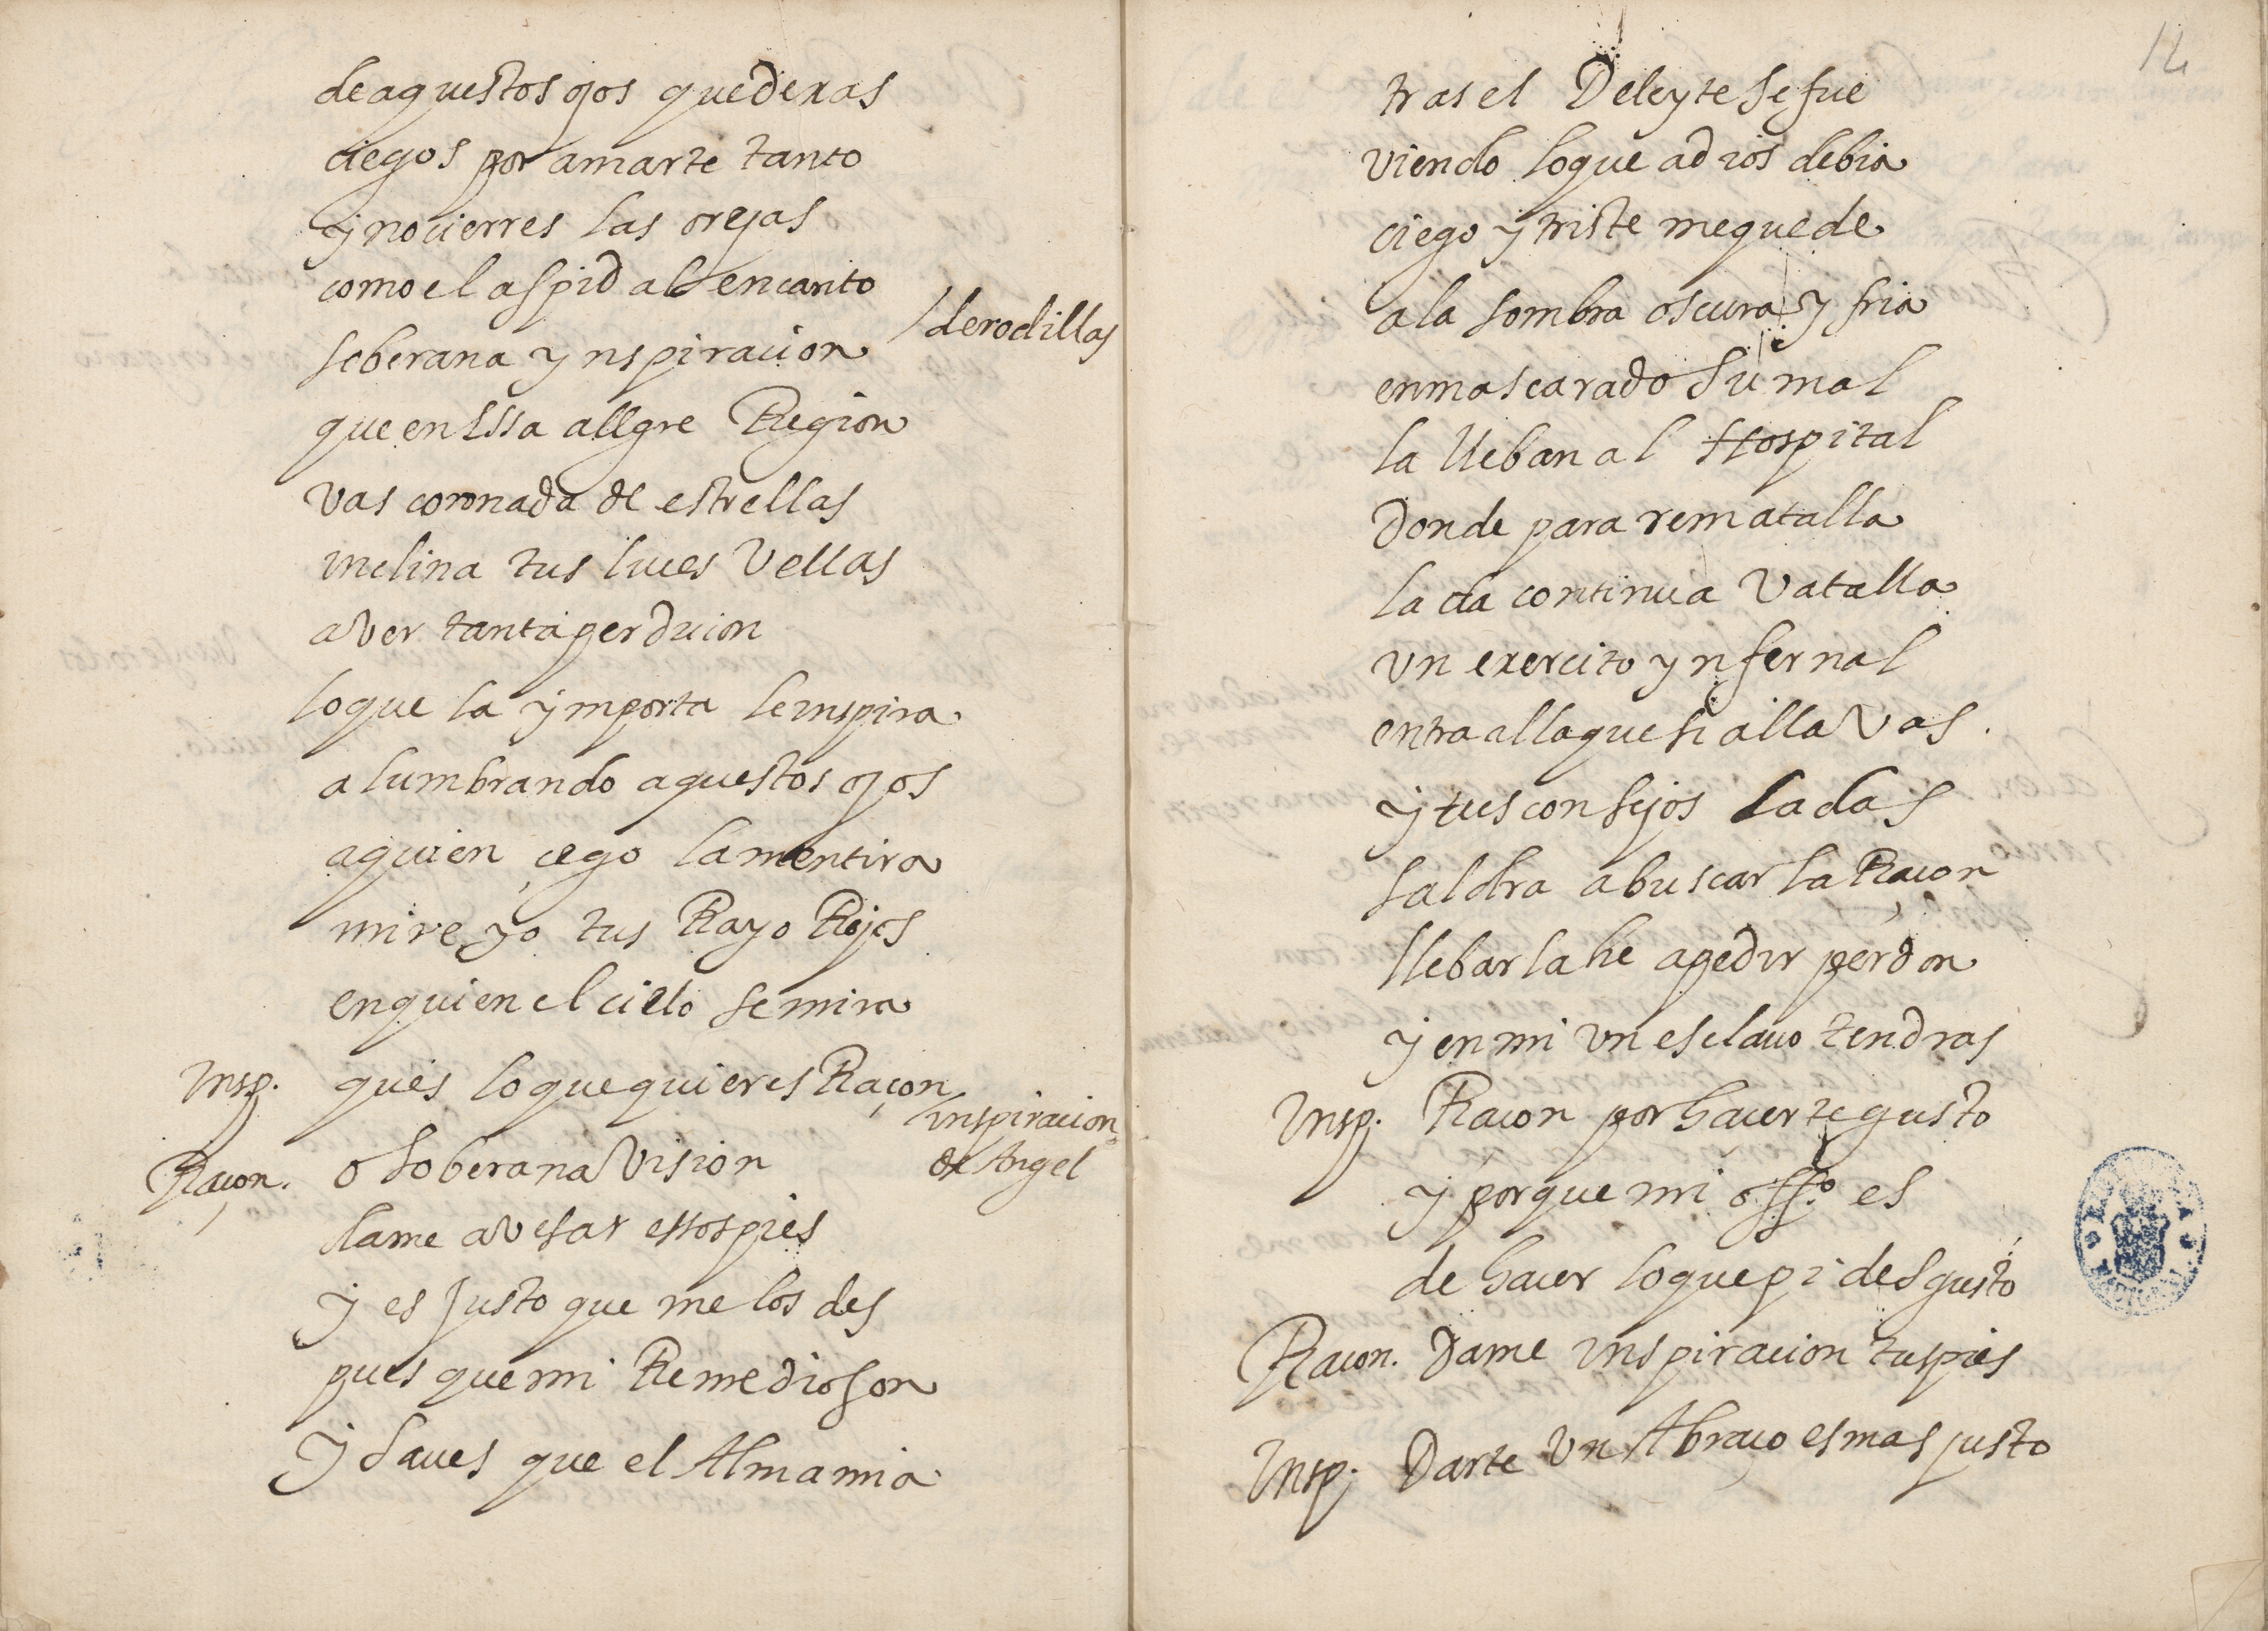 de aquestos ojos que dexas
ciegos por amarte tanto
y no cierres las orejas
como el aspid al encanto
soberana ynspiracion /de rodillas
que en essa allgre Region
vas coronada de estrellas
inclina tus luces vellas
a ver tanta perdicion
lo que la ymporta le inspira
alumbrando aquestos ojos
a quien çego la mentira
mire yo tus Rayo Rojos
en quien el cielo se mira
Insp. ques lo que quieres Raçon
inspiracion
de Angel
Raçon. o soberana vision
dame a vesar essos pies
y es justo que me los des
pues que mi Remedio son
y saues que el Alma mia
12
tras el Deleyte se fue
viendo lo que a dios debia
ciego y triste me quede
a la sombra oscura y fria
enmascarado su mal
la lleban al Hospital
donde para rematalla
la da continua vatalla
un exercito ynfernal
entra alla que si alla vas.
y tus consejos la das
saldra a buscar la Raçon
llebarla he a pedir perdon
y en mi un esclauo tendras
Insp. Racon por hacerte gusto
y porque mi offº. es
de hacer lo que pides gusto
Racon. Dame inspiracion tus pies
Insp. Darte un Abraço es mas justo